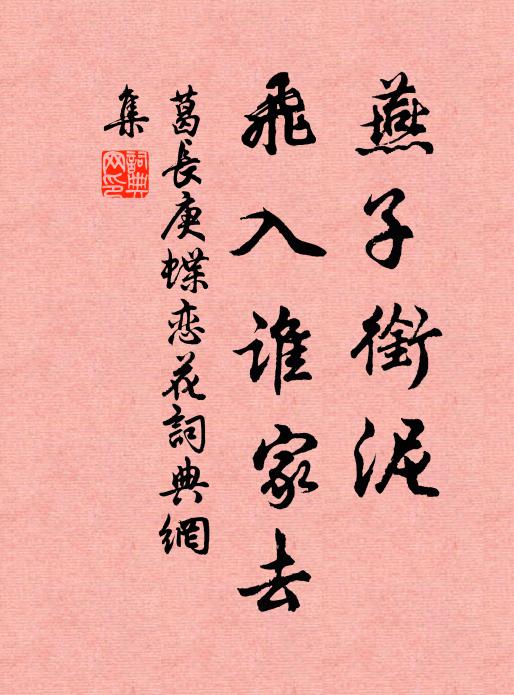 燕子銜泥
飛入誰家去
葛長庚蝶恋花詞典網
集
詞典
网印